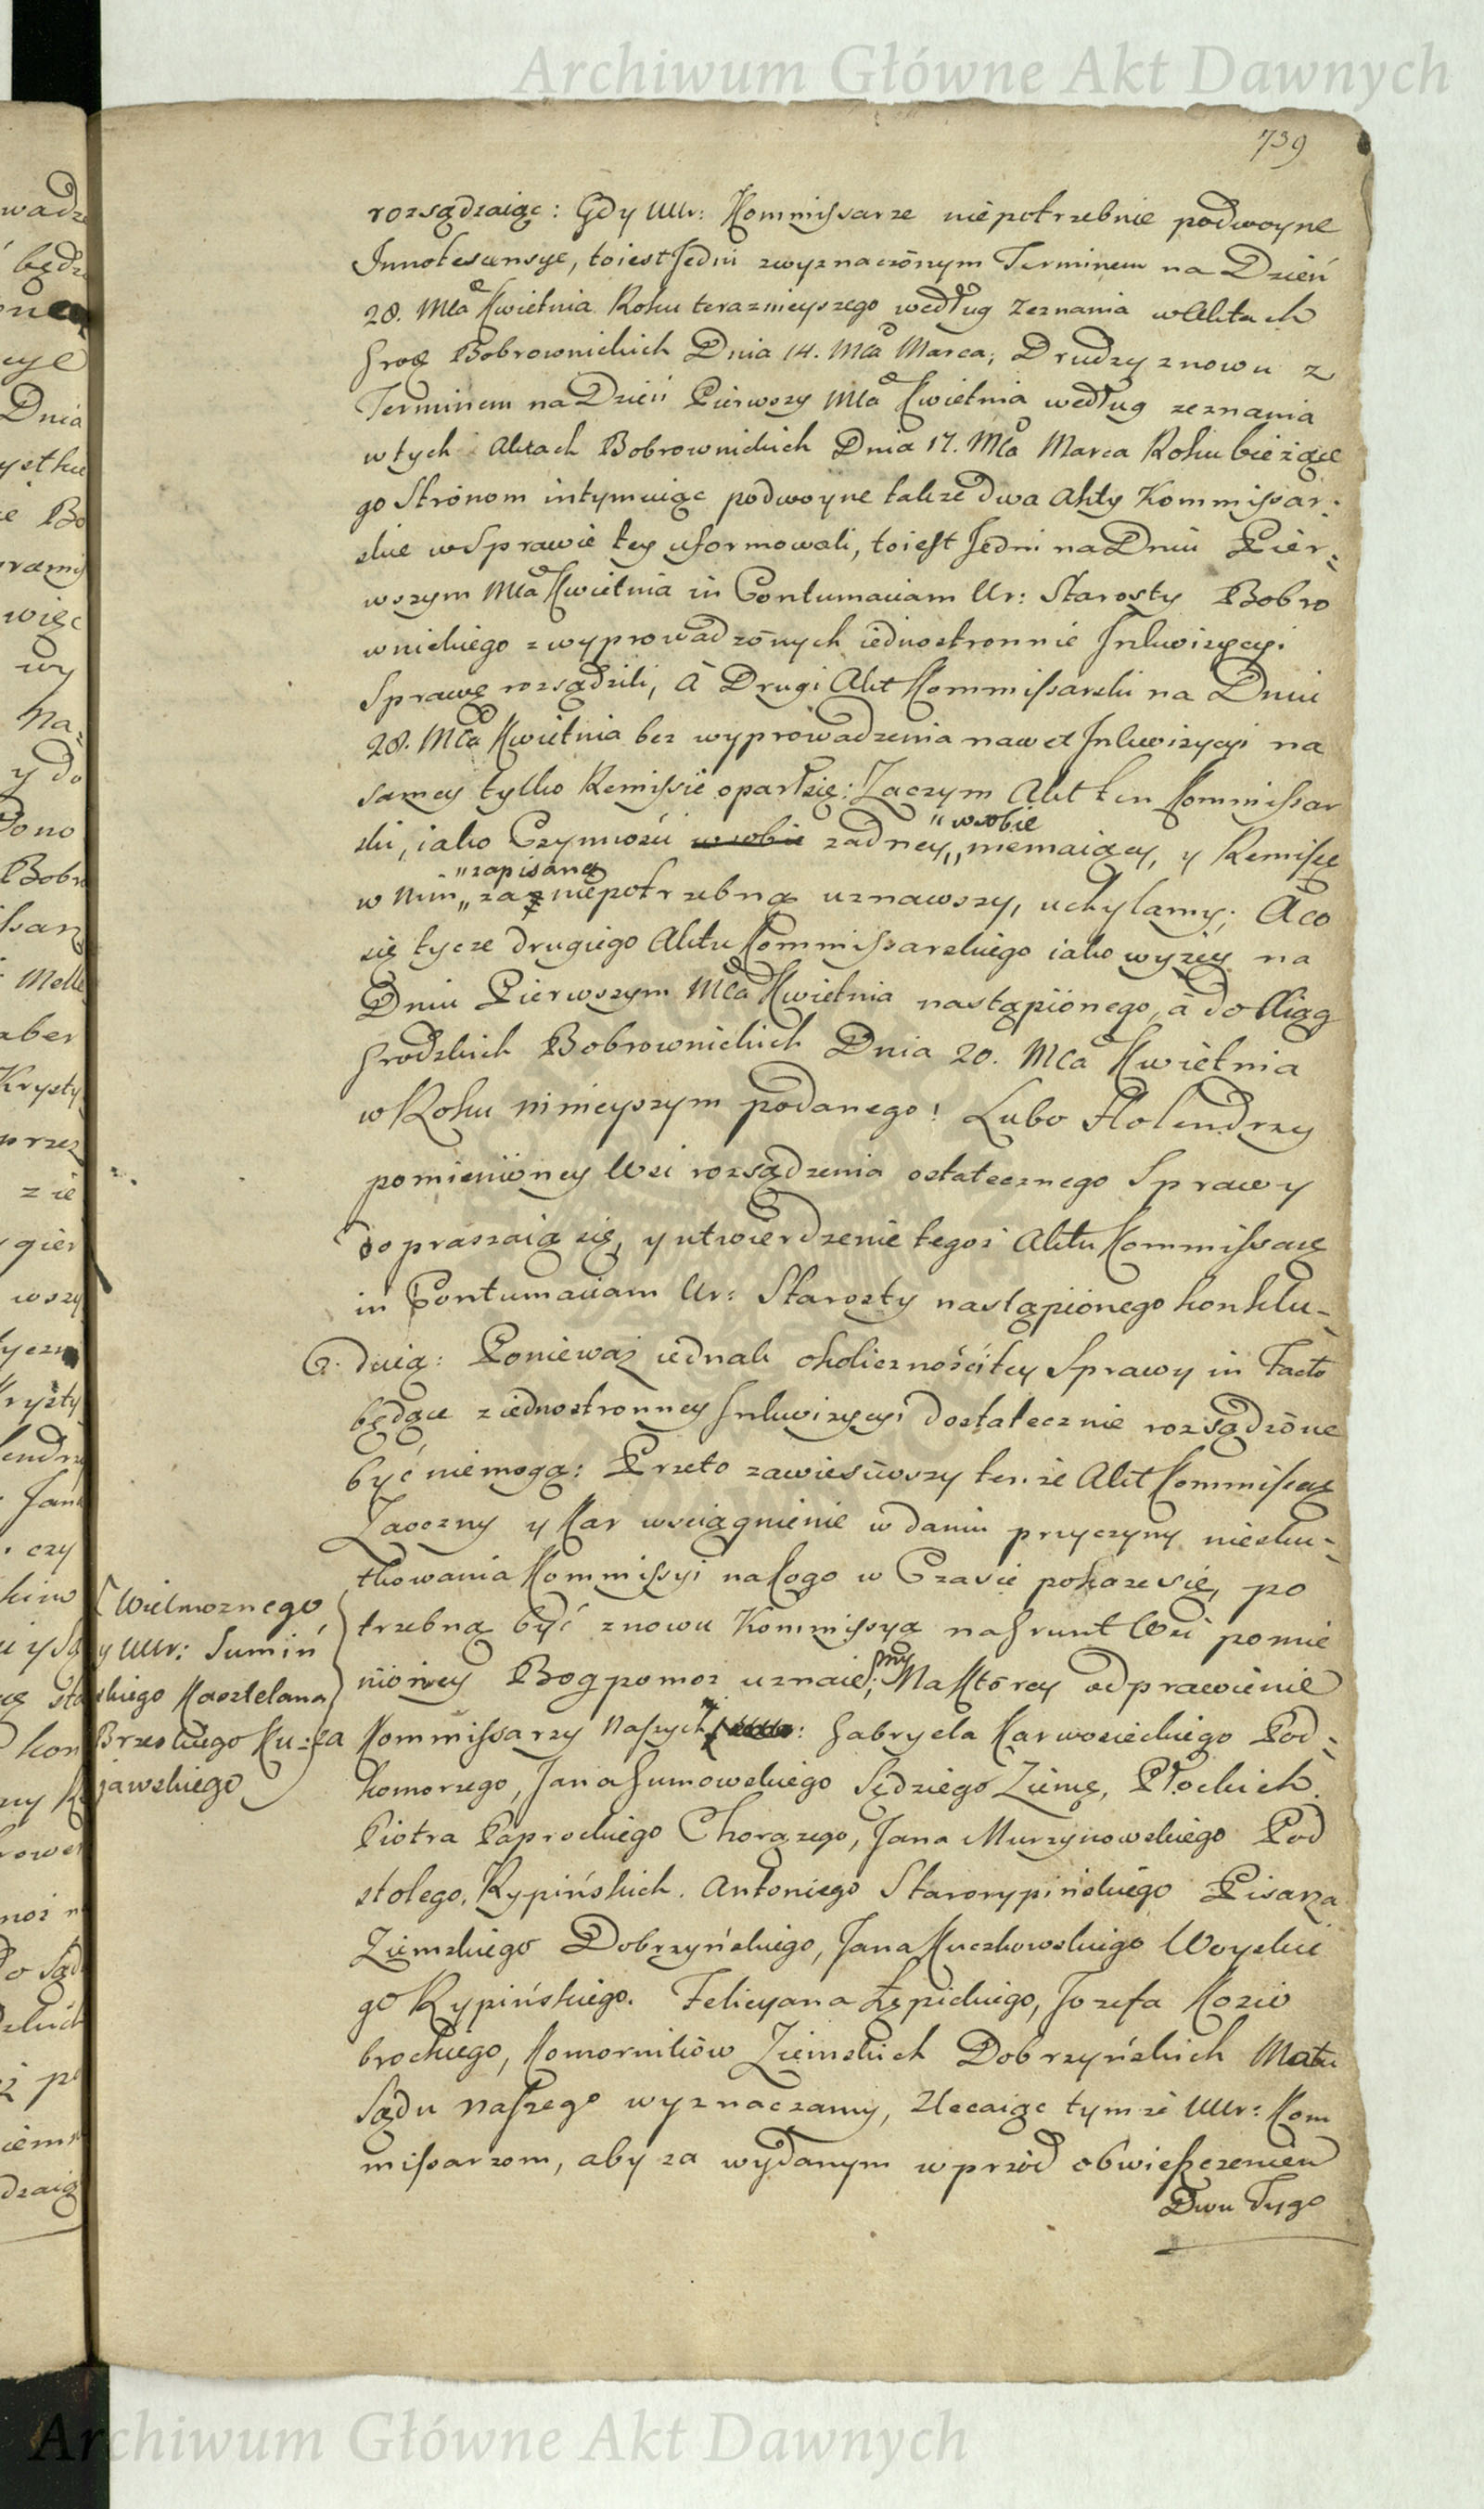 Archiwum Główne Akt Dawnych
739
rozsądzaiąc: Gdy UUr: Kommissarze niepotrzebnie podwoyne
Innotescensye, toiest Jedni zwyznaczonym Terminem na Dzień
28. Mca Kwietnia Roku teraznieyszego według Zeznania w Aktach
Grod Bobrownickich Dnia 14. Mca Marca, Drudzy znowu z
Terminem na Dzień Pierwszy Mca Kwietnia według zeznania
wtych Aktach Bobrownickich Dnia 17. Mca Marca Roku bieżące
go Stronom intymuiąc podwoyne także dwa Akty Kommissar:
skie w Sprawie tey uformowali, toiest Jedni na Dniu Pier:
wszym Mca Kwietnia in Contumaciam Ur: Starosty Bobro
wnickiego z wyprowadzonych iednostronnie Inkwizycyi
Sprawę rozsądzili, à Drugi Akt Kommissarski na Dniu
28. Mca Kwietnia bez wyprowadzenia nawet Inkwizycyi na
samey tylko Remissie oparł się: Zaczym Akt ten Kommissar
ski, iako Czynności w sobie zadney „ w sobie „ niemaiący, y Remissę
w Nim „ zapisaną „ za niepotrzebną uznawszy, uchylamy; A co
się tycze drugiego Aktu Kommissarskiego iako wyzey na
Dniu Pierwszym Mca Kwietnia nastąpionego, à do Xiąg
Grodzkich Bobrownickich Dnia 20. Mca Kwietnia
w Roku ninieyszym podanego! Lubo Holendrzy
pomienioney Wsi rozsądzenia ostatecznego Sprawy
dopraszaią się, y utwierdzenie tegoż Aktu Kommissar
in Contumaciam Ur: Starosty nastąpionego konklu-
duią: Ponieważ iednak okoliczności tey Sprawy in Facto
będące z iednostronney Inkwizycyi dostatecznie rozsądzone
być niemogą: Przeto zawiesiwszy tenże Akt Kommissar
Zaoczny y Kar wsciągnienie w daniu przyczyny niesku-
tkowania Kommissyi na kogo w Czasie pokaze się, po
trzebną być znowu Kommissyą na Grunt Wsi pomie
nioney Bogpomoz uznaiemy; Na Ktorey odprawienie
Kommissarzy Naszych : Gabryela Karwosieckiego Pod-
Wielmoznego
y UUr: Sumiń
skiego Kasztelana
Brzeskiego Ku:ia
jawskiego
komorzego, Jana Gumowskiego Sędziego Ziemę, Płockich
Piotra Paprockiego Chorązego, Jana Murzynowskiego Pod
stolego, Rypińskich. Antoniego Starorypińskiego Pisarza
Ziemskiego Dobrzyńskiego, Jana Kuczkowskiego Woyskie
go Rypińskiego. Felicyana Łępickiego, Jozefa Kozie
brockiego, Komornikow Ziemskich Dobrzyńskich Aktu
Sądu Naszego wyznaczamy, Zlecaiąc tymże UUr: Kom
missarzom, aby za wydanym wprzód obwieszczeniem
Dwu Tygo
Archiwum Główne Akt Dawnych